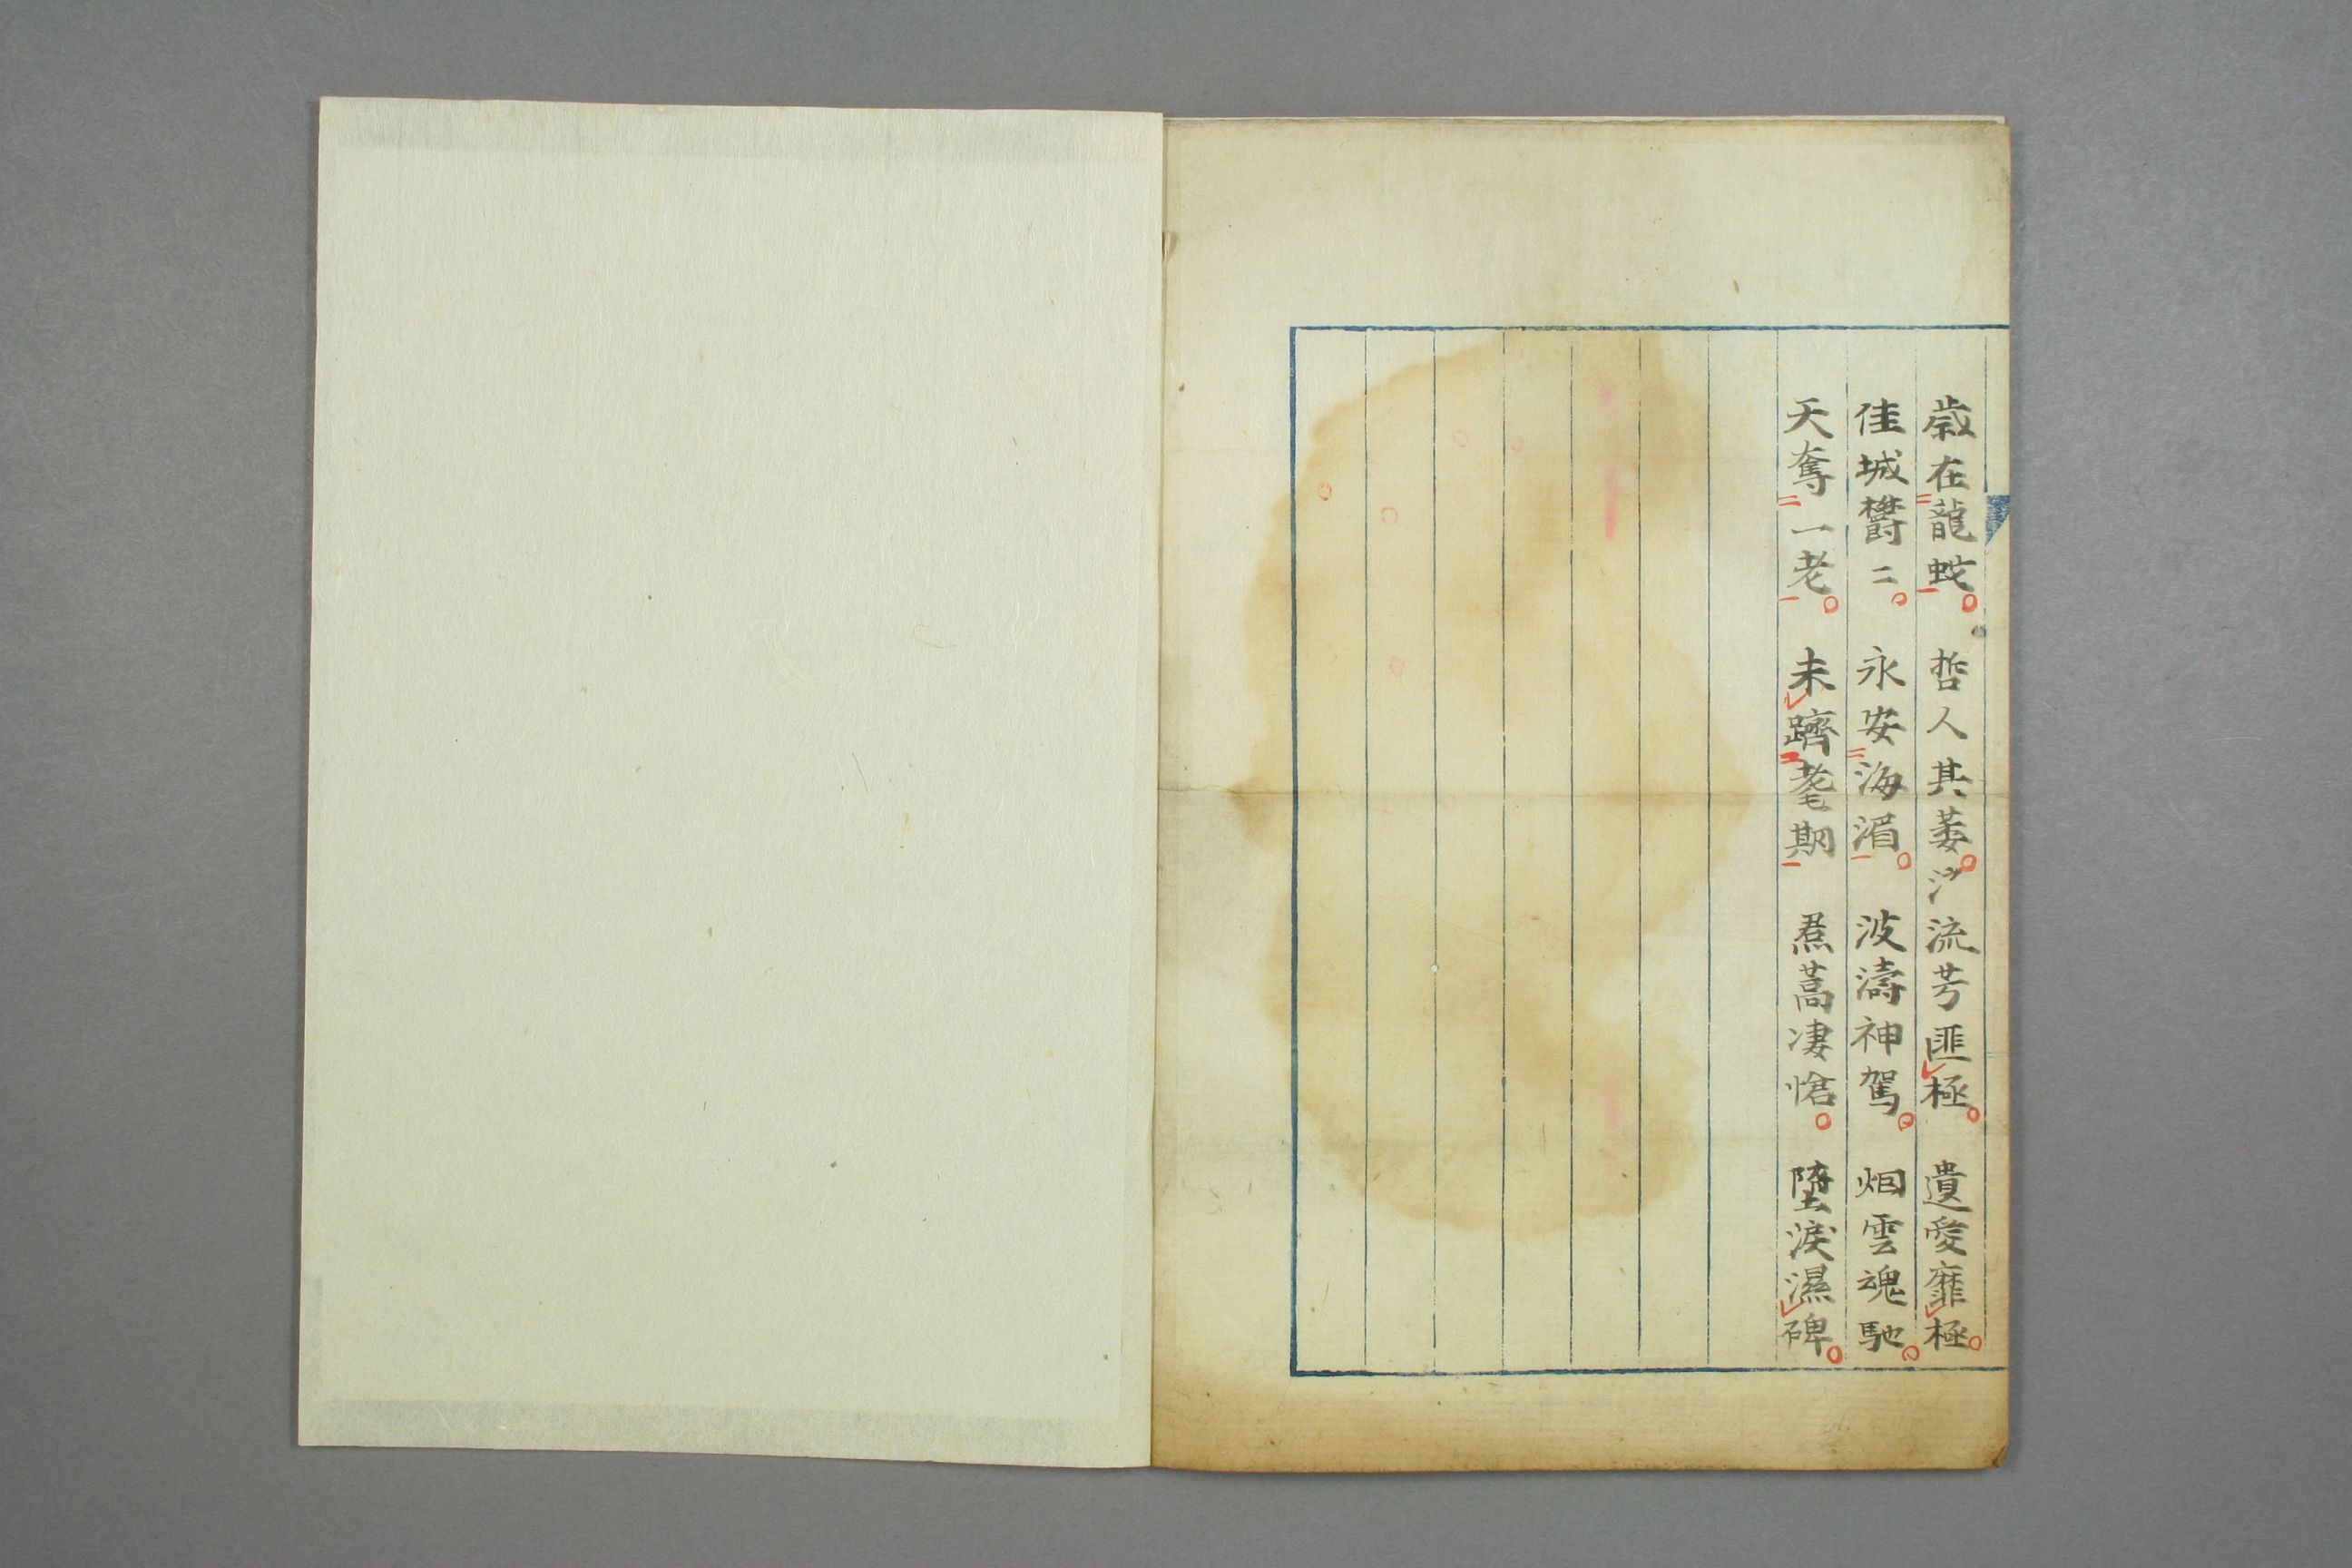 歳在龍蛇 哲人其萎 流芳匪極 遺愛靡極
佳城欝二 永安海湄 波濤神駕 烟雲魂馳
天奪一老 未躋耄期 焄蒿凄愴 墮涙濕碑